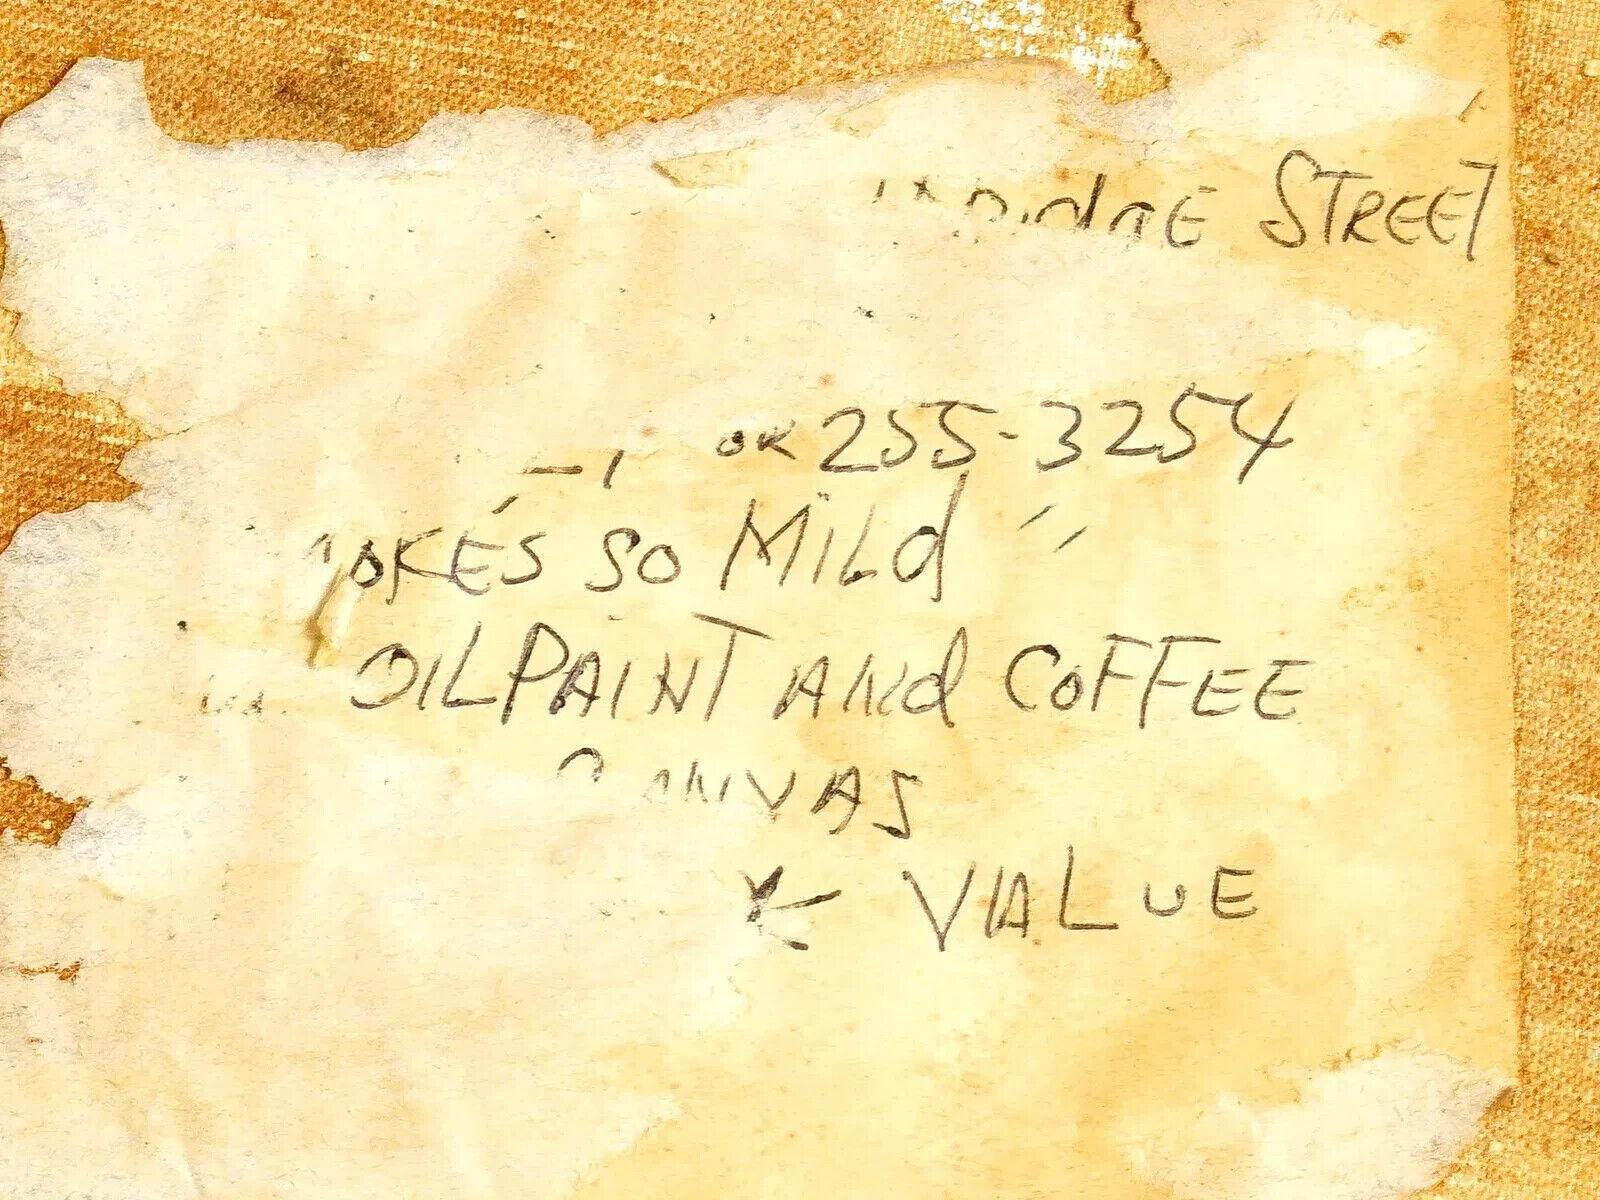 STREET
OR 255-3254
SO MILD"
OIL PAINT AND COFFEE
CANVAS
VALUE